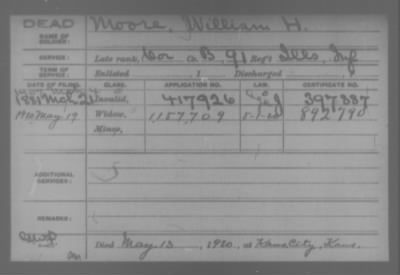 DEAD
NAME OF SOLDIER: Moore, William H.
SERVICE: Late rank, Cor Co. B, 91 Reg't Ills. Inf
TERM OF SERVICE: Enlisted , 1 Discharged , 1
DATE OF FILING. CLASS. APPLICATION NO. LAW. CERTIFICATE NO.
1881 Mch. 21 Invalid, 417926 397887
1920 May 19 Widow, 1,157,709 5-1-20 892790
Minor,
ADDITIONAL SERVICES:
REMARKS:
Died May 13, 1920, at Kans City, Kans.